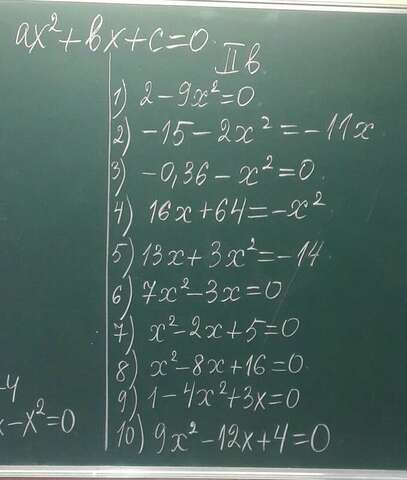 ax²+bx+c=0
II в
1) 2-9x²=0
2) -15-2x²=-11x
3) -0,36-x²=0
4) 16x+64=-x²
5) 13x+3x²=-14
6) 7x²-3x=0
7) x²-2x+5=0
8) x²-8x+16=0
9) 1-4x²+3x=0
10) 9x²-12x+4=0
-4
x-x²=0